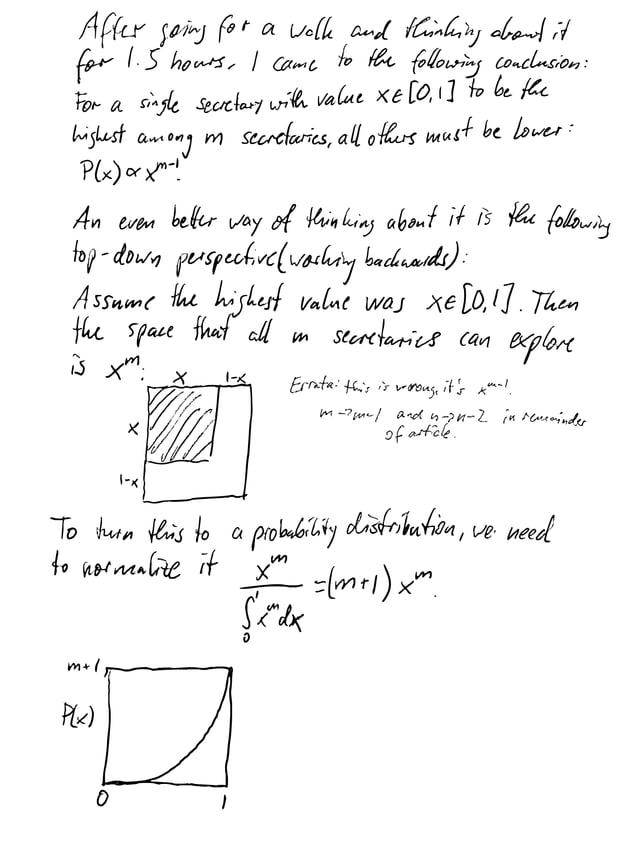 After going for a walk and thinking about it
for 1.5 hours, I came to the following conclusion:
For a single secretary with value x∈[0,1] to be the
highest among m secretaries, all others must be lower:
P(x)∝x^{m-1}.
An even better way of thinking about it is the following
top-down perspective (working backwards):
Assume the highest value was x∈[0,1]. Then
the space that all m secretaries can explore
is x^m:
x 1-x
x
1-x
Errata: this is wrong, it's x^{m-1}.
m→m-1 and n→n-2 in remainder
of article.
To turn this to a probability distribution, we need
to normalize it x^m / ∫_0^1 x^m dx = (m+1) x^m.
m+1
P(x)
0 1